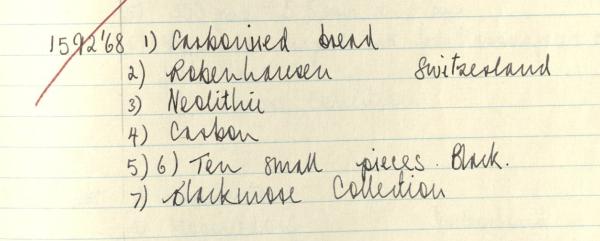 1592'68 1) Carbonised bread
2) Robenhausen Switzerland
3) Neolithic
4) Carbon
5) 6) Ten small pieces. Black.
7) Blackmore Collection